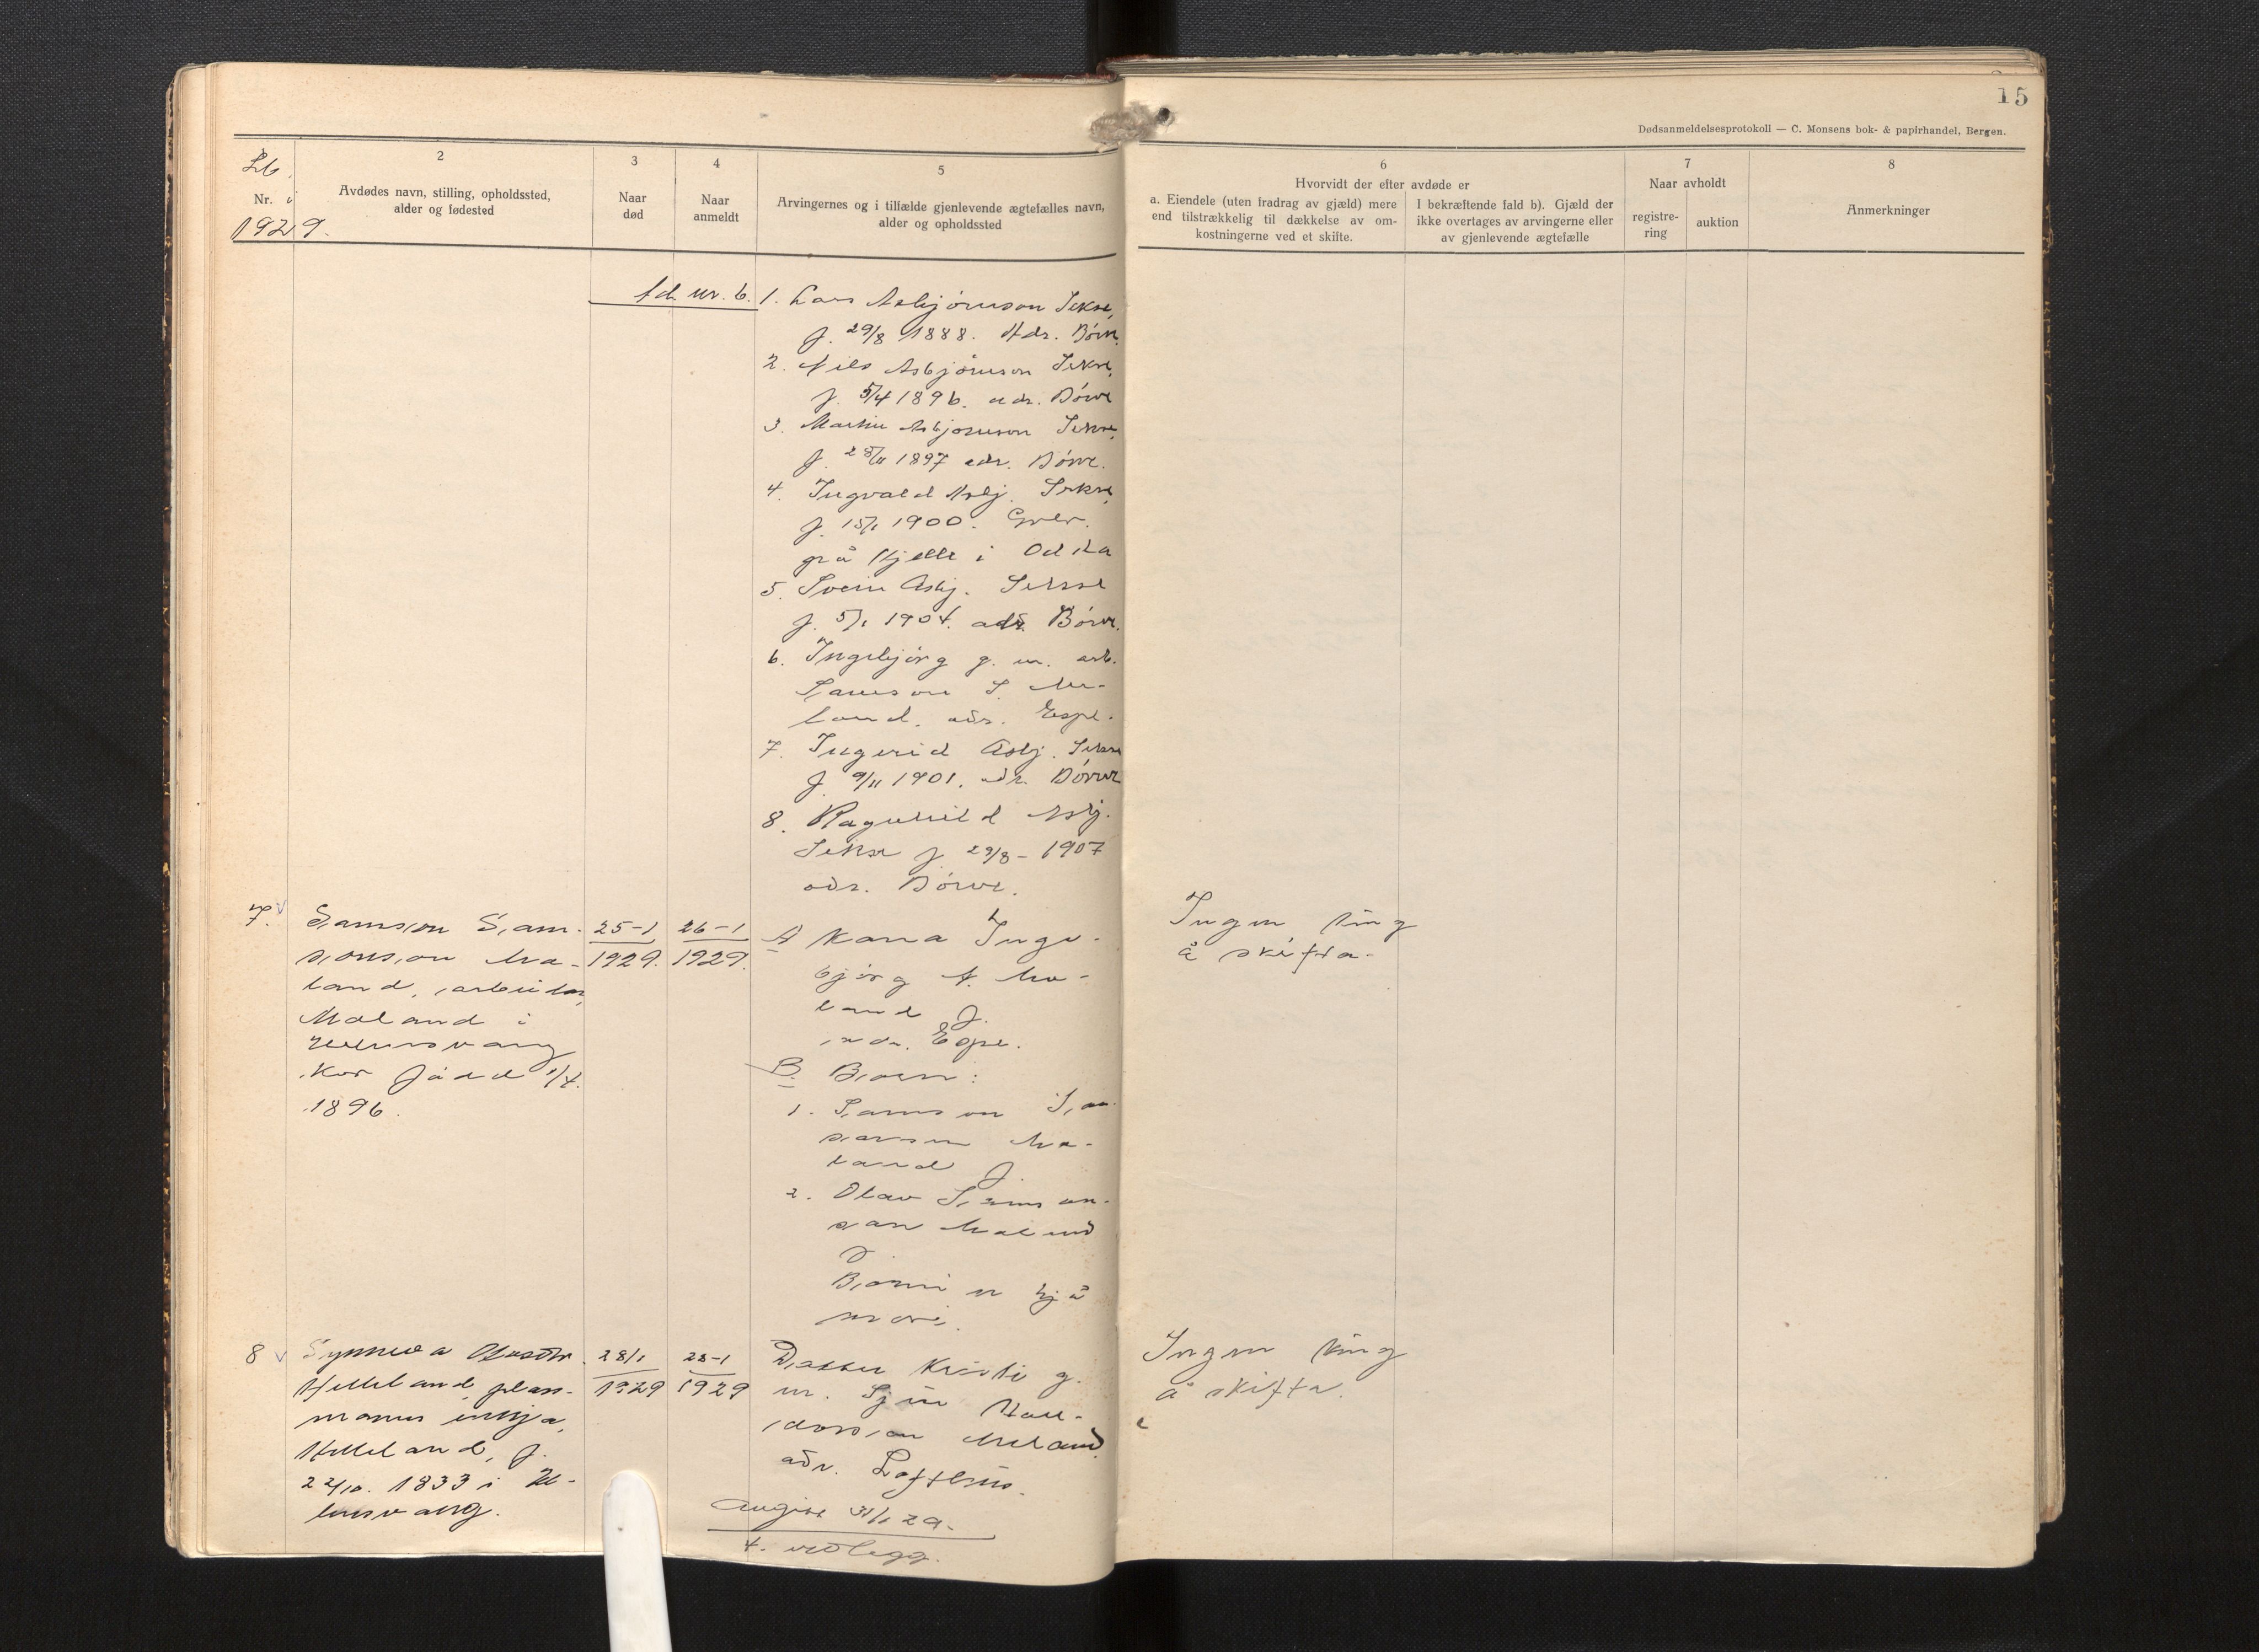 15
Dødsanmeldelsesprotokoll — C. Monsens bok- & papirhandel, Bergen.
Lb.
Nr. i
1929.
2
Avdødes navn, stilling, opholdssted,
alder og fødested
3
Naar
død
4
Naar
anmeldt
5
Arvingernes og i tilfælde gjenlevende ægtefælles navn,
alder og opholdssted
6
Hvorvidt der efter avdøde er
a. Eiendele (uten fradrag av gjæld) mere
end tilstrækkelig til dækkelse av om-
kostningerne ved et skifte.
I bekræftende fald b). Gjæld der
ikke overtages av arvingerne eller
av gjenlevende ægtefælle
7
Naar avholdt
registre-
ring
auktion
8
Anmerkninger
nr. 6.
1. Lars Asbjørnson Sekse,
f. 29/8 1888. Adr. Børve
2. Nils Asbjørnson Sekse,
f. 5/4 1896. adr. Børve
3. Asbjørnson Sekse,
f. 1897 adr. Børve.
4. Ingvald Asbj. Sekse,
f. 15/1 1900.
på Hjelle i Odda
5. Svein Asbj. Sekse
f. 5/1 1904. adr. Børve.
6. Ingebjørg g. m. arb.
Samson S. Me-
land, adr. Espe.
7. Ingerid Asbj. Sekse
f. 9/11 1901. adr. Børve
8. Ragnhild Asbj.
Sekse f. 29/8 - 1907
adr. Børve.
7.
Samson Sam-
sonson Me-
land, arbeidar,
Meland i
Ullensvang
Kor fødd 1/4.
1896.
25-1
1929.
26-1
1929.
A Kona Inge-
bjørg A. Me-
land f.
adr. Espe.
B. Born:
1. Samson Sam-
sonson Me-
land f.
2. Olav Samson-
son Meland
f.
Borni er hjå
mori.
Ingen ting
å skifta.
8
Synneva
Helleland plass-
manns enkja,
Helleland, f.
22/10. 1833 i Ul-
lensvang.
28/1
1929
28-1
1929
Dotter Kristi g.
m. Hall-
dorson Meland,
adr. Lofthus.
Avgist 31/1 29.
4. vedlegg.
Ingen ting
å skifta.